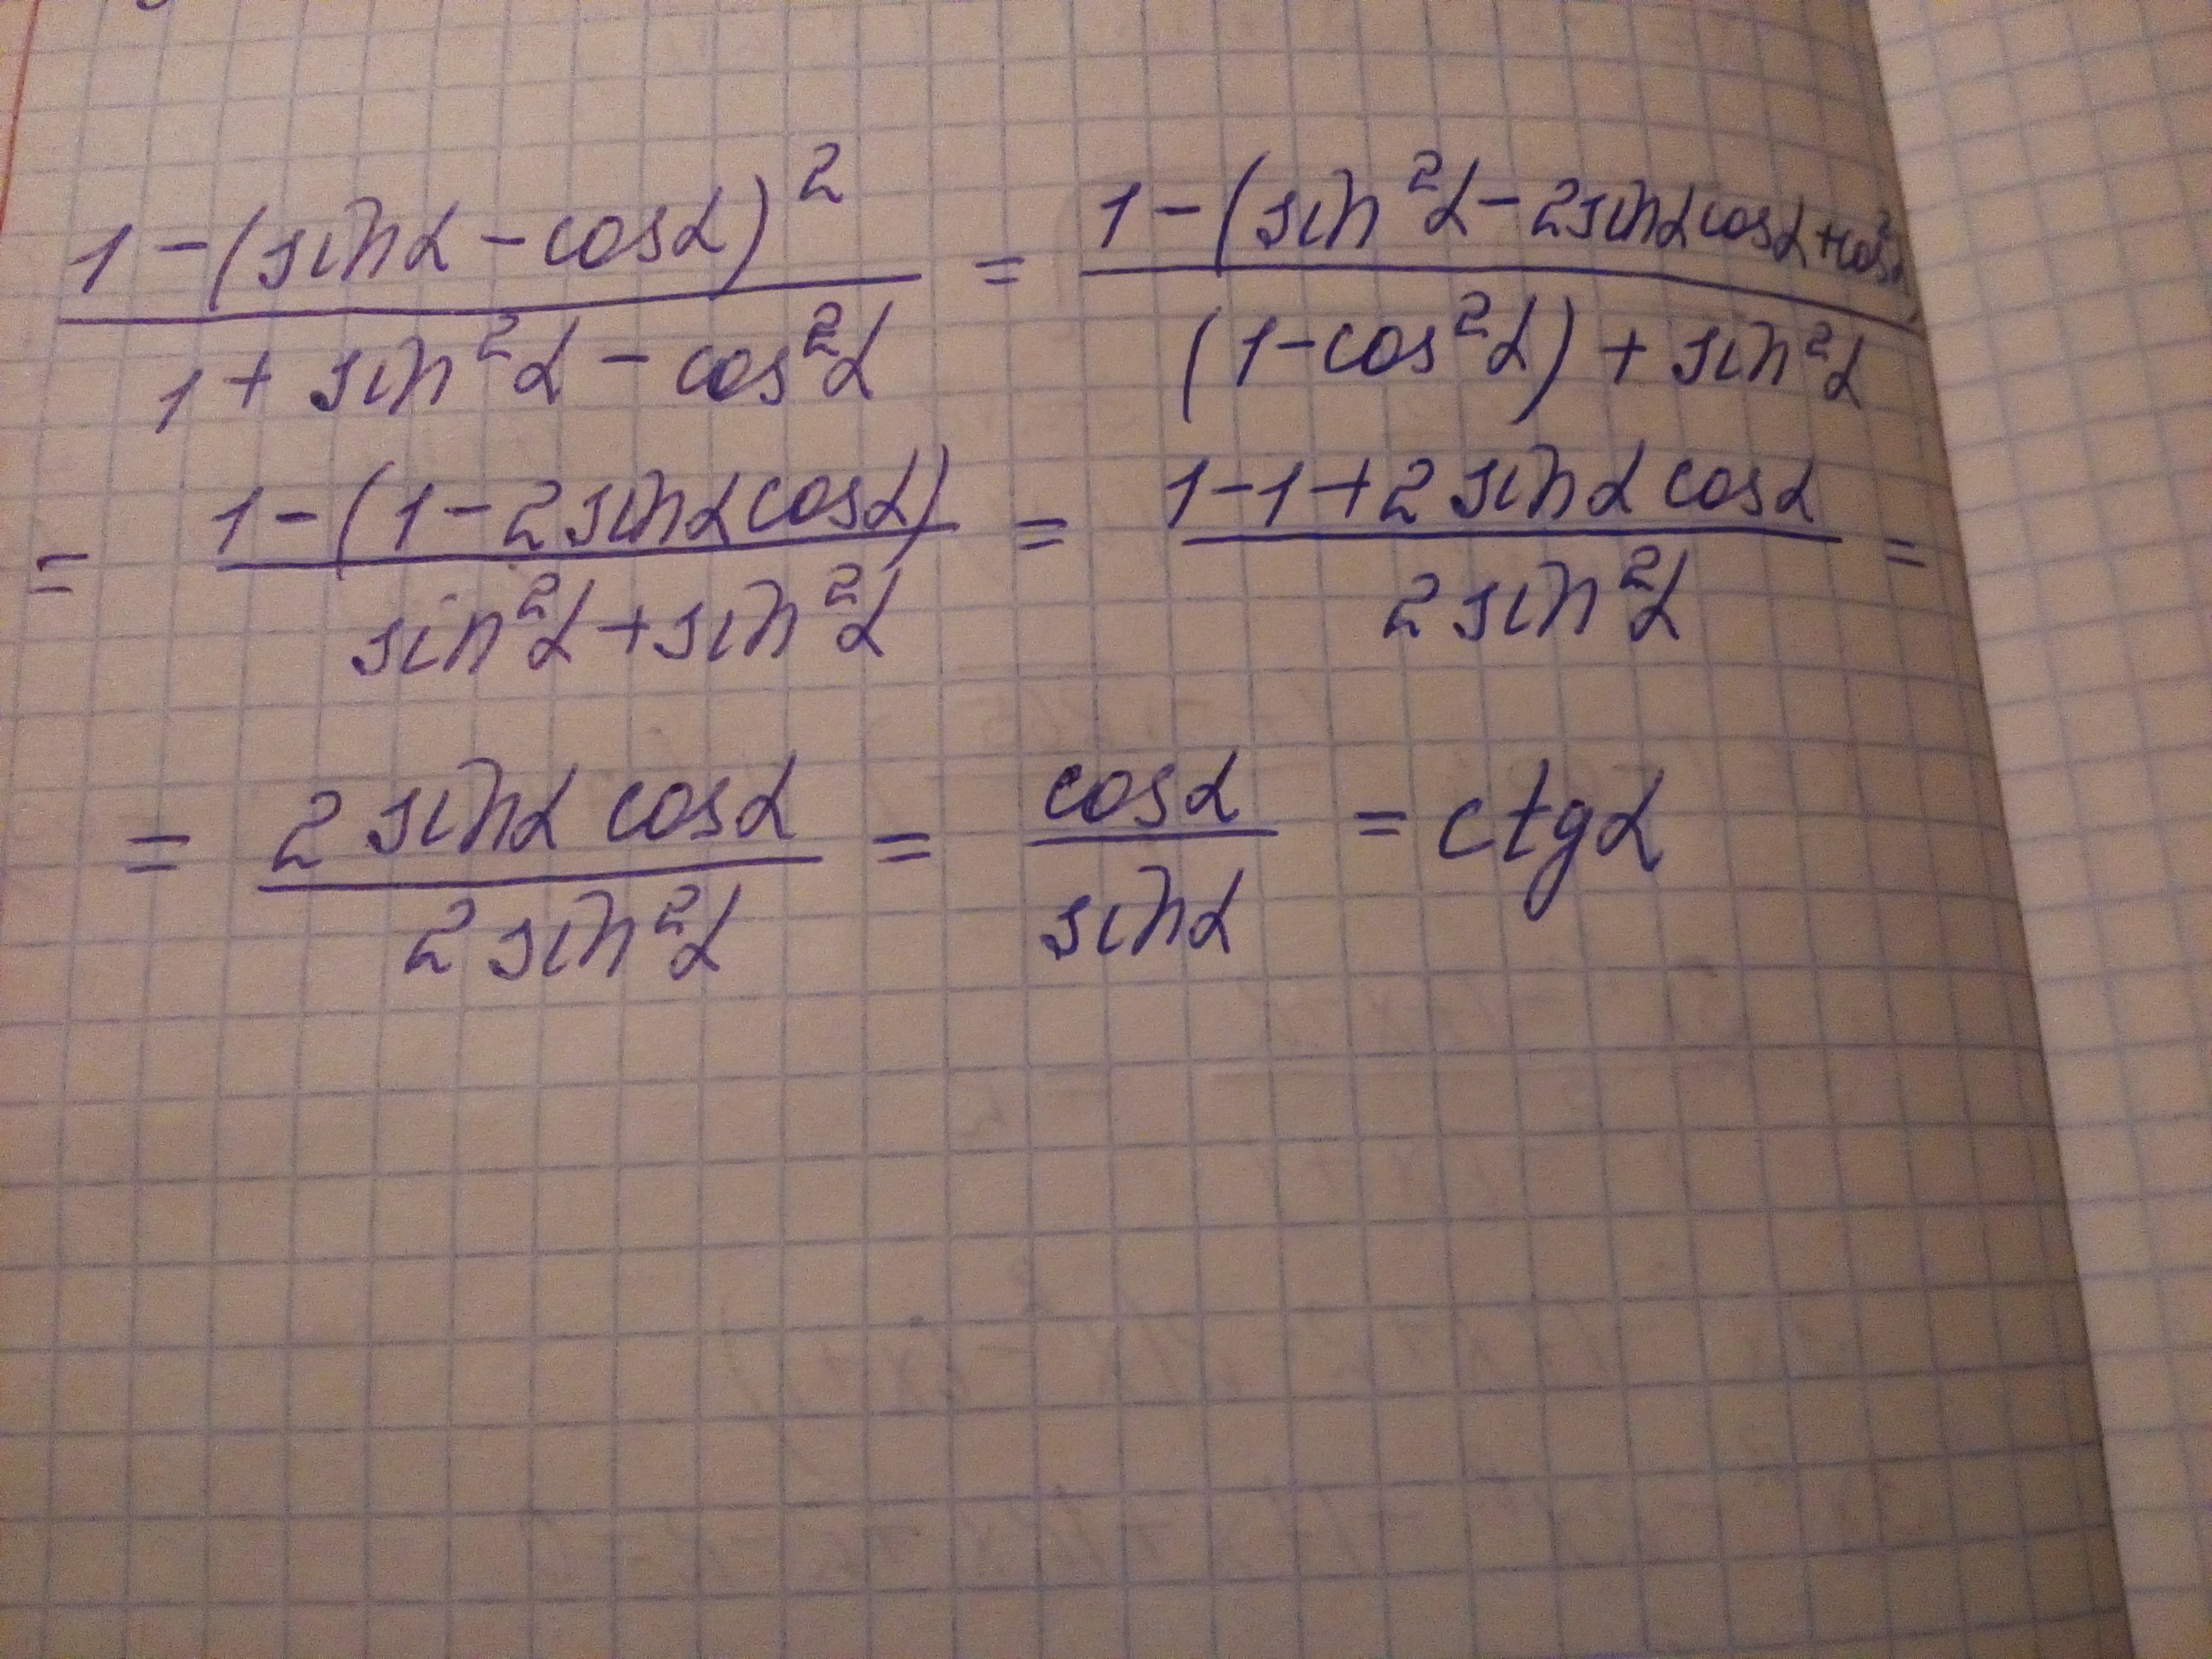 (1-(sinα-cosα)²)/(1+sin²α-cos²α) = (1-(sin²α-2sinαcosα+cos²α))/((1-cos²α)+sin²α)
= (1-(1-2sinαcosα))/(sin²α+sin²α) = (1-1+2sinαcosα)/(2sin²α) =
= (2sinαcosα)/(2sin²α) = cosα/sinα = ctgα